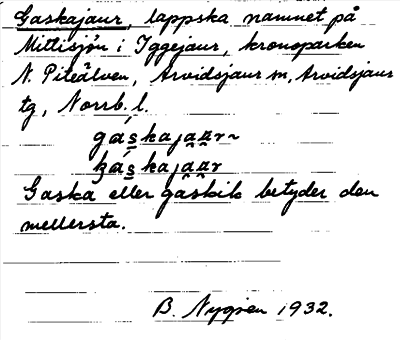 Gaskajaur, lappska namnet på
Mittisjön i Iggejaur, kronoparken
N. Piteälven, Arvidsjaur sn, Arvidsjaur
tg, Norrb. l.
gáskajaar~
káskajaar
Gaska eller gaskik betyder den
mellersta.
B. Nygren 1932.